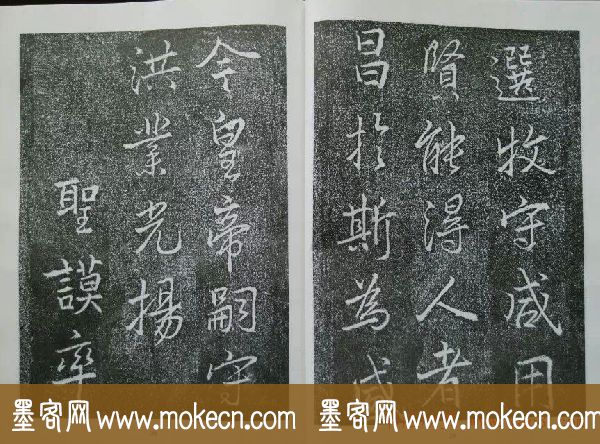 選牧守咸用
賢能得人者
昌於斯為盛
今皇帝嗣守
洪業光揚
聖謨率
墨客网 www.mokecn.com
墨客网 www.mokecn.com